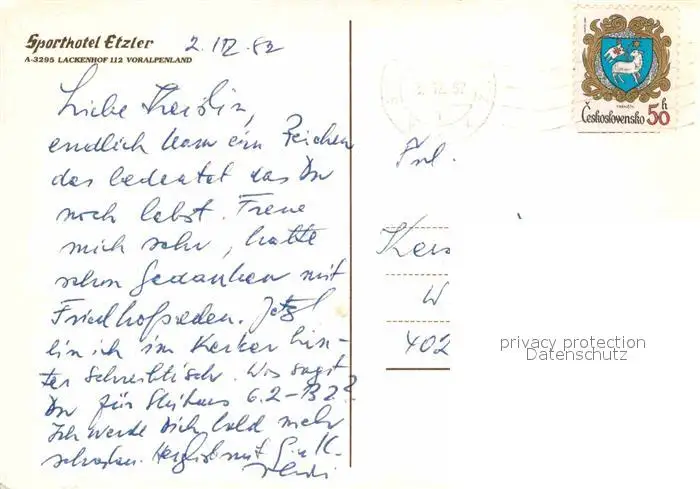 Sporthotel Etzler
A-3295 LACKENHOF 112 VORALPENLAND
2. IX. 82
Liebe Kerstin,
endlich kam ein Zeichen
das bedeutet das Du
noch lebst. Freue
mich sehr, hatte
schon Gedanken mit
Friedhofreden. Jetzt
bin ich im Kerker hin-
ter Schreibtisch. Was sagst
Du für 6.2-13.2?
Ich werde Dich bald mehr
schreiben. Herzlichst mit G. u. K.
Frl.
Kers
W
402
Československo 50 h
privacy protection
Datenschutz